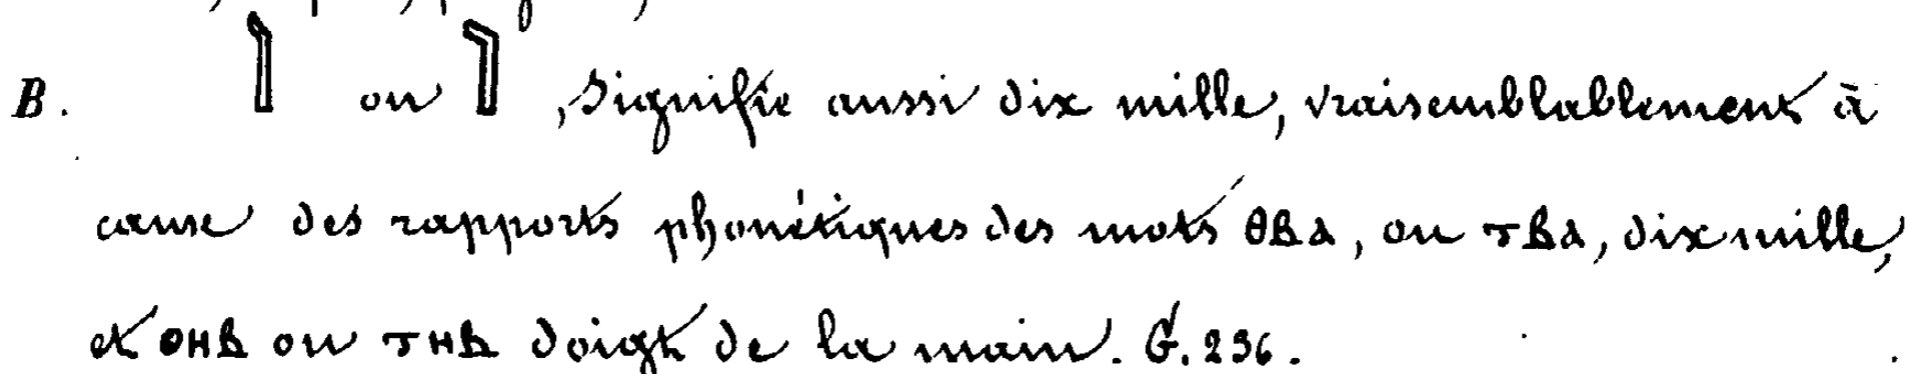 B. 𓂭 ou 𓂭, signifie aussi dix mille, vraisemblablement à
cause des rapports phonétiques des mots ⲑⲃⲁ, ou ⲧⲃⲁ, dix mille,
et ⲑⲏⲃ ou ⲧⲏⲃ doigt de la main. G. 236.